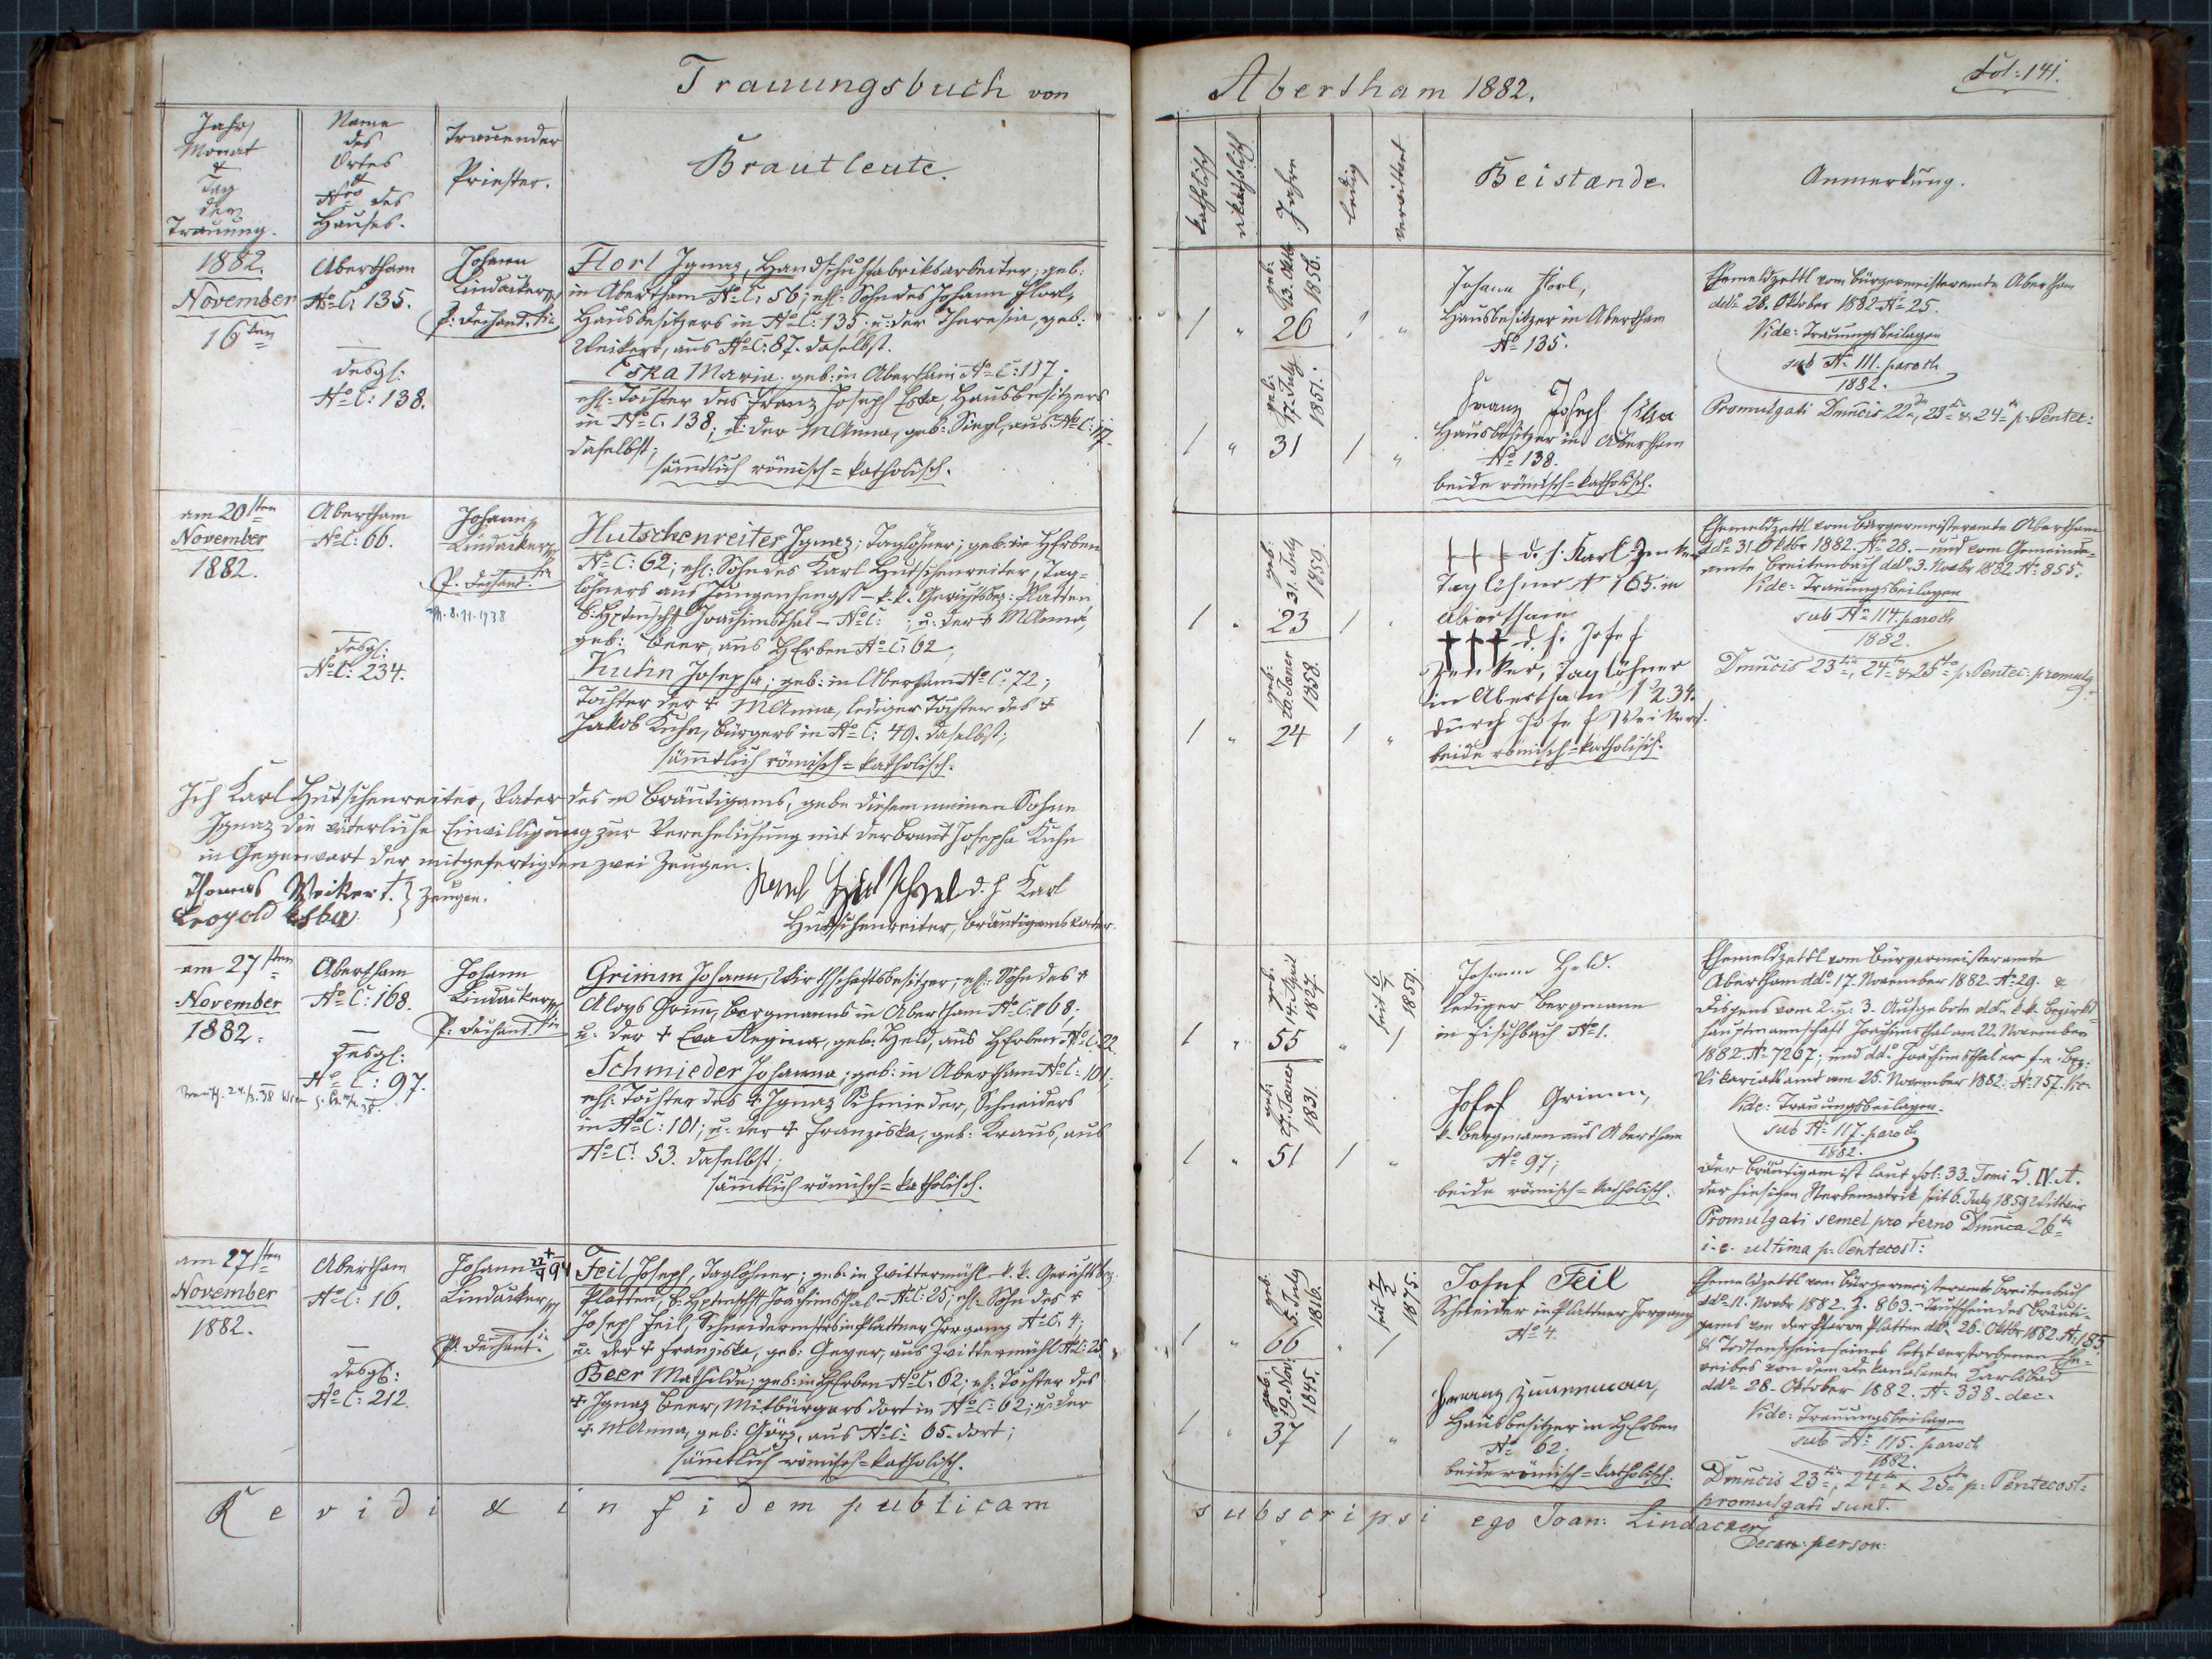 Trauungsbuch von
Abertham 1882.
Fol: 141.
Jahr,
Monat
&
Tag
der
Trauung.
Name
des
Ortes
&
Nro des
Hauses.
Trauender
Priester.
Brautleute.
katholisch
akatholisch
Jahre
ledig
verwittwet
Beistände.
Anmerkung.
1882.
November
16ten
Abertham
No C: 135.
desgl:
No C: 138.
Johann
Lindacker
P. Dechant.
Florl Ignaz, Handschuhfabriksarbeiter; geb:
in Abertham No C: 56; ehl: Sohn des Johann Florl,
Hausbesitzers in No C: 135. u: der Theresia, geb:
Weikert, aus No C: 87. daselbst.
Eska Maria. geb: in Abertham No C: 117;
ehl: Tochter des Franz Joseph Eska, Hausbesitzers
in No C: 138; u: der M Anna, geb: Siegl, aus No C: 17
daselbst;
sämtlich römisch=katholisch.
1 " geb: 13. Oktb 1856. 26 1 "
1 " geb: 17. July 1851. 31 1 "
Johann Florl,
Hausbesitzer in Abertham
No 135.
Franz Joseph Eska
Hausbesitzer in Abertham
No 138.
beide römisch=katholisch.
Ehemeldzettl vom Bürgermeisteramte Abertham
ddo 28. Oktober 1882 No 25.
Vide: Trauungsbeilagen
sub No 111. paroch
1882.
Promulgati Dmncis 22a, 23a & 24a p. Pentec:
am 20sten
November
1882.
Abertham
No C: 66.
desgl:
No C: 234.
Johann
Lindacker
P. Dechant.
8.11.1938
Hutschenreiter Ignaz; Taglöhner; geb: in HErben
No C: 62; ehl: Sohn des Karl Hutschenreiter, Tag=
löhners aus Jungenhengst - k.k. Gerichtsbez: Platten
B: Hptmschft Joachimsthal - No C: ; u: der + M Anna,
geb: Beer, aus HErben No C: 62;
Kuhn Josepha; geb: in Abertham No C: 72;
Tochter der + M Anna, lediger Tochter des +
Jakob Kuhn, Bürgers in No C: 49. daselbst;
sämtlich römisch=katholisch.
1 " geb: 31. July 1859. 23 1 "
1 " geb: 20. Jäner 1858. 24 1 "
+++ d. h. Karl Zenker
Taglöhner No 165. in
Abertham
+++ d. h. Josef
Zenker, Taglöhner
in Abertham No 234.
durch Josef Weikert.
beide römisch=katholisch.
Ehemeldzettl vom Bürgermeisteramte Abertham
ddo 31. Oktbr 1882. No 28. - und vom Gemeinde=
amte Breitenbach ddo 3. Novbr 1882. No 855.
Vide: Trauungsbeilagen
sub No 114. paroch
1882.
Dmncis 23a, 24a & 25a p. Pentec: promulg
Ich Karl Hutschenreiter, Vater des Bräutigams, gebe diesem meinem Sohne
Ignaz die väterliche Einwilligung zur Verehelichung mit der Braut Josepha Kuhn
in Gegenwart der mitgefertigten zwei Zeugen.
Thomas Weikert.
Leopold Eska
} Zeugen.
d. h. Karl
Hutschenreiter, Bräutigams Vater.
am 27sten
November
1882.
Abertham
No C: 168.
desgl:
No C: 97.
Johann
Lindacker
P. Dechant
Grimm Johann, Wirthschaftsbesitzer; ehl: Sohn des +
Aloys Grimm, Bergmanns in Abertham No C: 168;
u: der + Eva Regina, geb: Held, aus HErben No C: 22.
Schmieder Johanna; geb: in Abertham No C: 101;
ehl: Tochter des + Ignaz Schmieder, Schneiders
in No C: 101; u: der + Franziska, geb: Kraus, aus
No C: 53. daselbst;
sämtlich römisch=katholisch.
1 " geb: 14. April 1827. 55 " 1 seit 6/7 1859.
1 " geb: 27. Jäner 1831. 51 1 "
Johann Held.
lediger Bergmann
in Fischbach No 1.
Josef Grimm,
k. Bergmann aus Abertham
No 97;
beide römisch=katholisch.
Ehemeldzettl vom Bürgermeisteramte
Abertham ddo 17. November 1882. No 29. &
Dispens vom 2. u: 3. Aufgebote ddo k.k. Bezirks
hauptmannschaft Joachimsthal am 22. November
1882. No 7267; und ddo Joachimsthaler f. e. Bez:
Vikariatsamt am 25. November 1882. No 157. Vic.
Vide: Trauungsbeilagen.
sub No 117. paroch
1882.
Der Bräutigam ist laut Fol: 33. Tomi
der hiesigen Sterbematrik seit 6. July 1859 Wittwer
Promulgati semel pro terno Dmnca 26ta
i. e. ultima p: Pentecost:
am 27sten
November
1882.
Abertham
No C: 16.
desgl:
No C: 212.
Johann
Lindacker
P. Dechant.
Feil Joseph, Taglöhner; geb: in Zwittermühl k.k. Gerichtsbez:
Platten, B: Hptmschft Joachimsthal - No C: 25; ehl: Sohn des +
Joseph Feil, Schneidermstrs in Plattner Irrgang No C: 4;
u: der + Franziska, geb: Geyer, aus Zwittermühl No C: 25
Beer Mathilda; geb: in HErben No C: 62; ehl: Tochter des
+ Ignaz Beer, Mitbürgers dort in No C: 62; u: der
+ M Anna, geb: Görz, aus No C: 65. dort;
sämtlich römisch=katholisch.
1 " geb: 5. July 1816. 66 " 1 seit 7/2 1875.
1 " geb: 19. Nov: 1845. 37 1 "
Josef Feil
Schneider in Plattner Irrgang
No 4.
Franz Zimermann,
Hausbesitzer in HErben
No 62.
beide römisch=katholisch.
Ehemeldzettl vom Bürgermeisteramte Breitenbach
ddo 11. Novbr 1882. Z. 863. - Taufschein des Bräuti=
gams von der Pfarre Platten ddo 26. Oktbr 1882. No 185.
& Todtenschein seines letzt verstorbenen Ehe=
weibes von dem Dekanalamte Karlsbad
ddo 28. Oktober 1882. No 338. dec.
Vide: Trauungsbeilagen
sub No 115. paroch
1882.
Dmncis 23tia, 24ta & 25ta p: Pentecost:
promulgati sunt.
Revidi & in fidem publicam
subscripsi ego Joan: Lindacker
Decan: person: